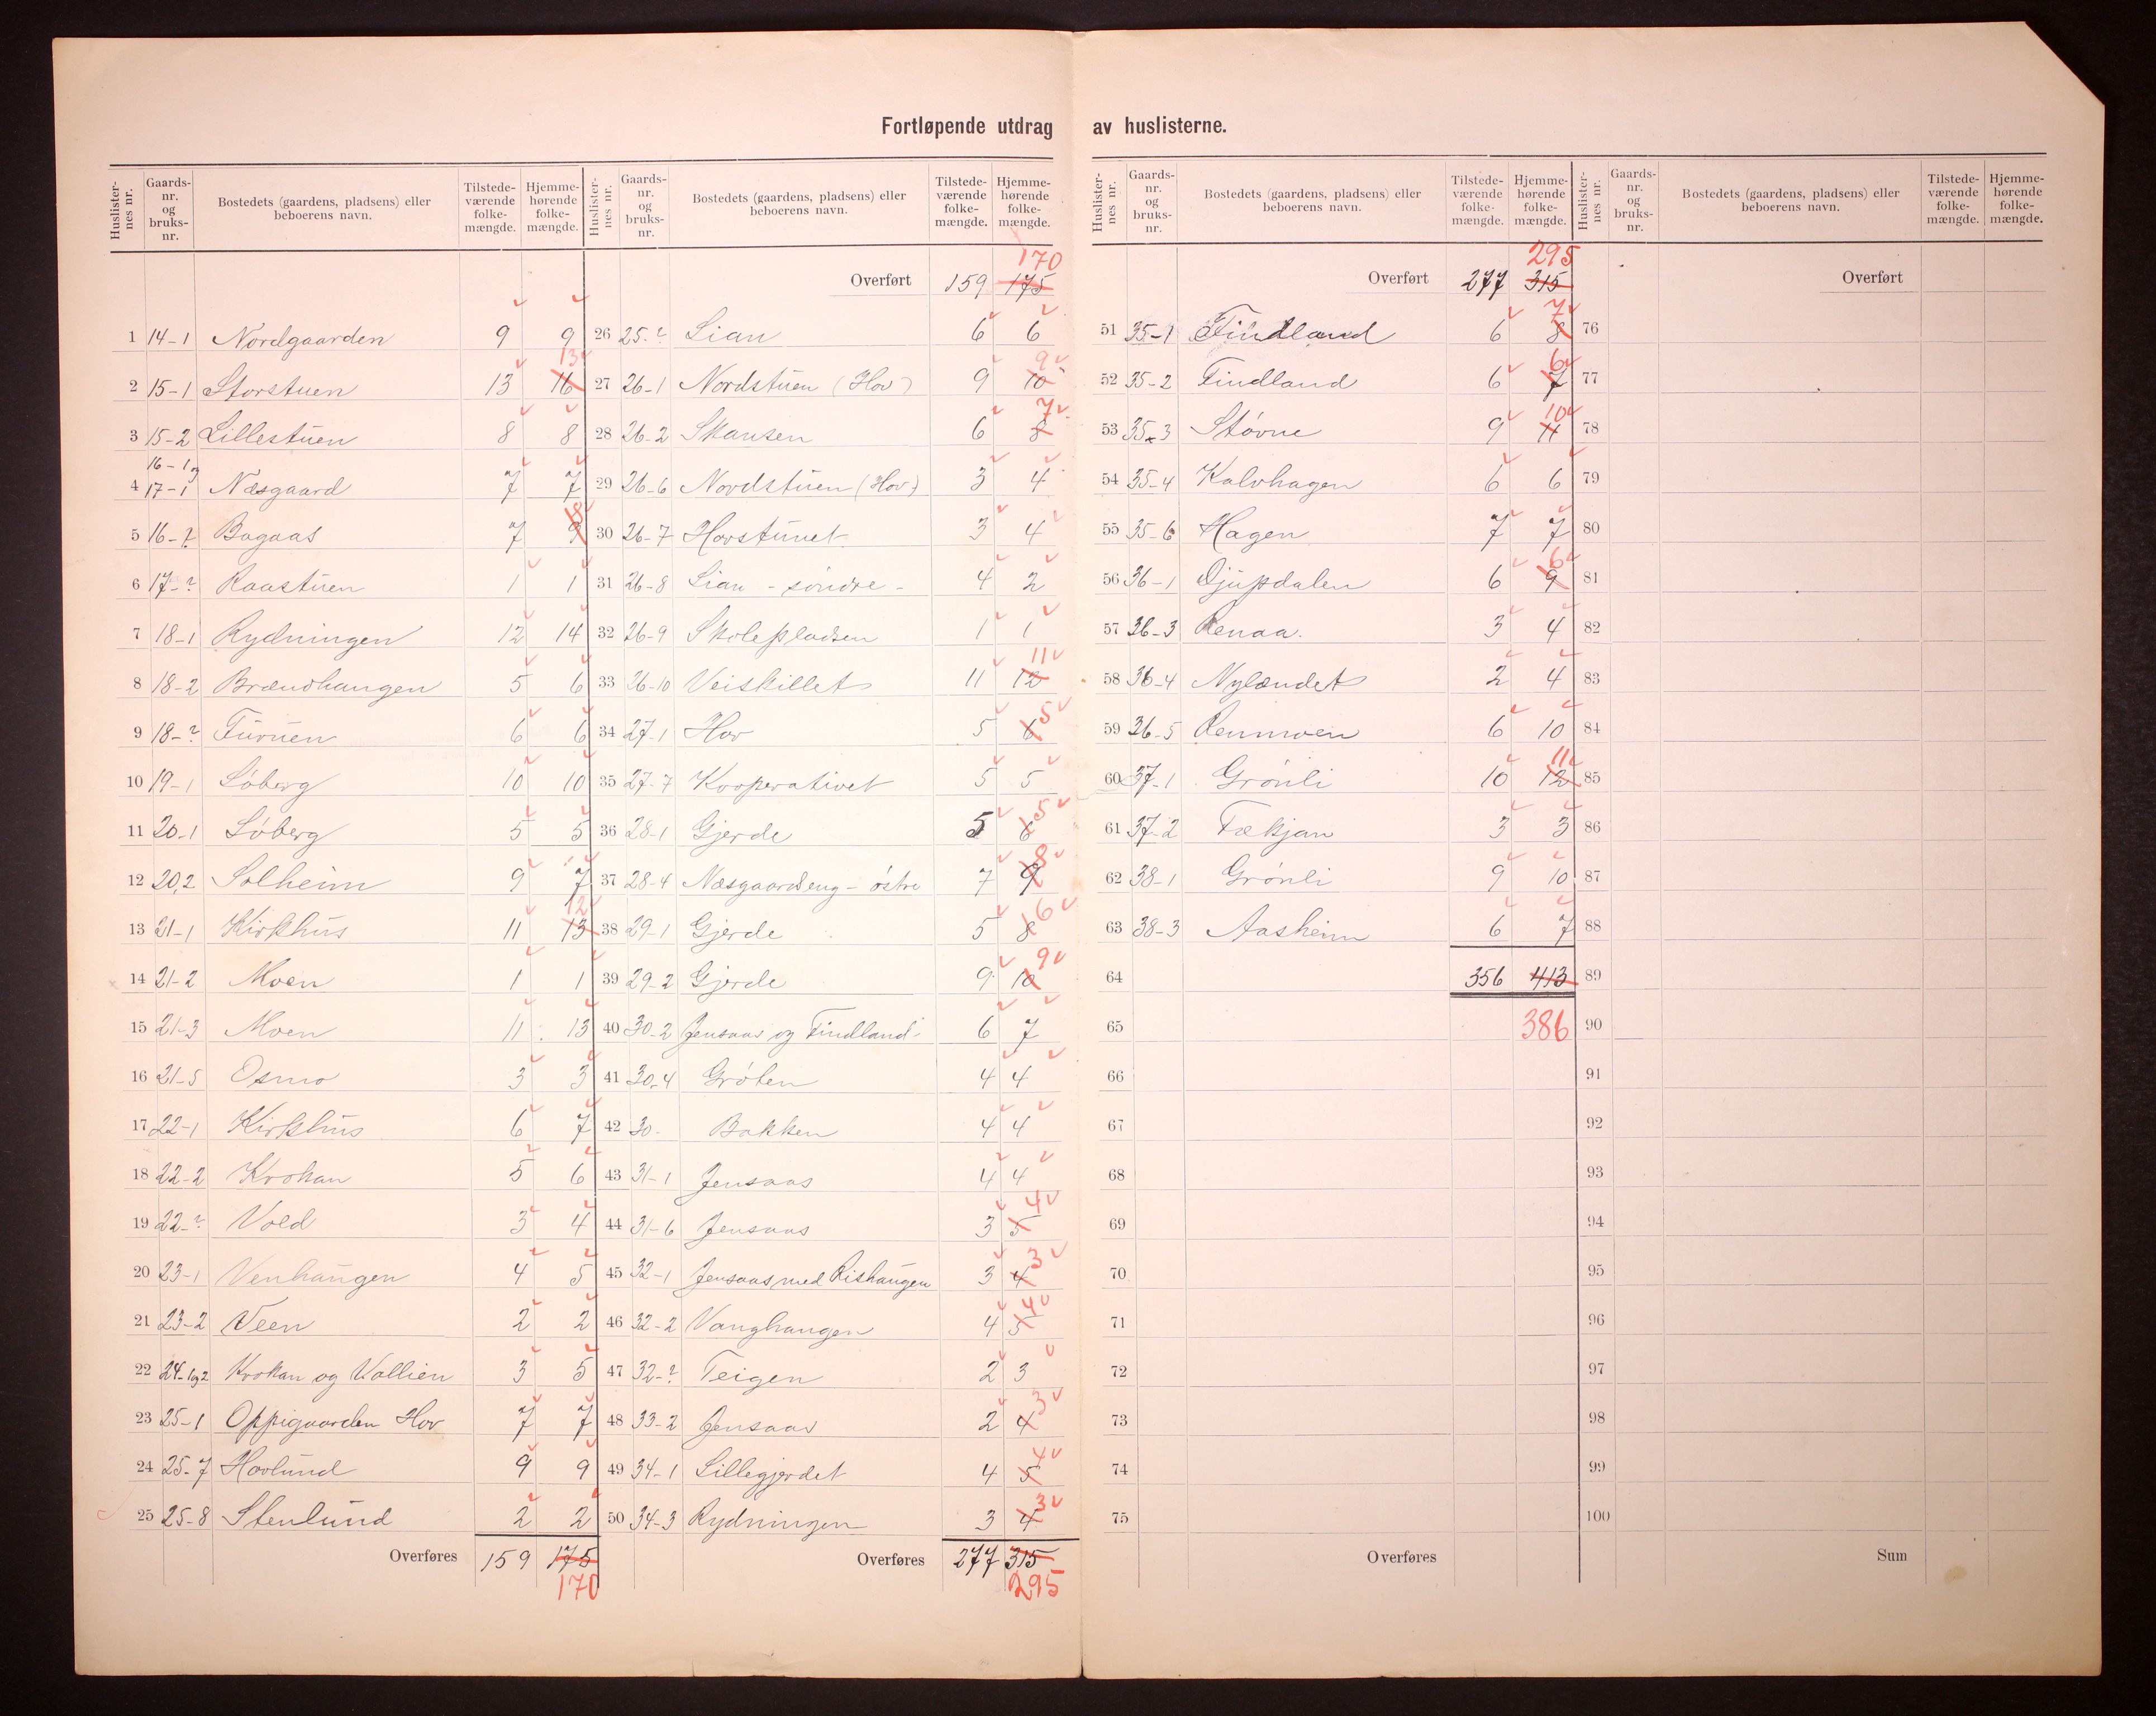 Fortløpende utdrag av huslisterne.
Huslister-nes nr. Gaards-nr. og bruks-nr. Bostedets (gaardens, pladsens) eller beboerens navn. Tilstede-værende folke-mængde. Hjemme-hørende folke-mængde.
1 14-1 Nordgaarden 9 9
2 15-1 Storstuen 13 16 13
3 15-2 Lillestuen 8 8
4 16-1 og 17-1 Næsgaard 7 7
5 16-2 Bagaas 7 9 8
6 17-? Raastuen 1 1
7 18-1 Rydningen 12 14
8 18-2 Brændhaugen 5 6
9 18-? Furuen 6 6
10 19-1 Løberg 10 10
11 20-1 Løberg 5 5
12 20,2 Solheim 9 7
13 21-1 Kirkhus 11 13 12
14 21-2 Moen 1 1
15 21-3 Moen 11 13
16 21-5 Osmo 3 3
17 22-1 Kirkhus 6 7
18 22-2 Krokan 5 6
19 22-? Vold 3 4
20 23-1 Venhaugen 4 5
21 23-2 Veen 2 2
22 24-1og2 Krokan og Vollien 3 5
23 25-1 Oppigaarden Hov 7 7
24 25-7 Hovlund 9 9
25 25-8 Stenlund 2 2
Overføres 159 175
170
Huslister-nes nr. Gaards-nr. og bruks-nr. Bostedets (gaardens, pladsens) eller beboerens navn. Tilstede-værende folke-mængde. Hjemme-hørende folke-mængde.
170
Overført 159 175
26 25-? Lian 6 6
27 26-1 Nordstuen (Hov) 9 10 9
28 26-2 Skansen 6 8 7
29 26-6 Nordstuen (Hov) 3 4
30 26-7 Hovstunet 3 4
31 26-8 Lian - søndre - 4 2
32 26-9 Skolepladsen 1 1
33 26-10 Veiskillet 11 12 11
34 27-1 Hov 5 6 5
35 27-7 Kooperativet 5 5
36 28-1 Gjerde 5 6 5
37 28-4 Næsgaardseng - østre 7 9 8
38 29-1 Gjerde 5 8 6
39 29-2 Gjerde 9 10 9
40 30-2 Jensaas og Findland 6 7
41 30-4 Grøten 4 4
42 30- Bakken 4 4
43 31-1 Jensaas 4 4
44 31-6 Jensaas 3 5 4
45 32-1 Jensaas med Rishaugen 3 4 3
46 32-2 Vanghaugen 4 5 4
47 32-? Teigen 2 3
48 33-2 Jensaas 2 4 3
49 34-1 Lillegjerdet 4 5 4
50 34-3 Rydningen 3 4 3
Overføres 277 315
295
Huslister-nes nr. Gaards-nr. og bruks-nr. Bostedets (gaardens, pladsens) eller beboerens navn. Tilstede-værende folke-mængde. Hjemme-hørende folke-mængde.
295
Overført 277 315
51 35-1 Findland 6 8 7
52 35-2 Findland 6 7 6
53 35-3 Støvne 9 11 10
54 35-4 Kalvhagen 6 6
55 35-6 Hagen 7 7
56 36-1 Djupdalen 6 9 6
57 36-3 Renaa. 3 4
58 36-4 Nylændet 2 4
59 36-5 Renmoen 6 10
60 37-1 Grønli 10 12 11
61 37-2 Tækjan 3 3
62 38-1 Grønli 9 10
63 38-3 Aasheim 6 7
64 356 413
65 386
66
67
68
69
70
71
72
73
74
75
Overføres
Huslister-nes nr. Gaards-nr. og bruks-nr. Bostedets (gaardens, pladsens) eller beboerens navn. Tilstede-værende folke-mængde. Hjemme-hørende folke-mængde.
Overført
76
77
78
79
80
81
82
83
84
85
86
87
88
89
90
91
92
93
94
95
96
97
98
99
100
Sum